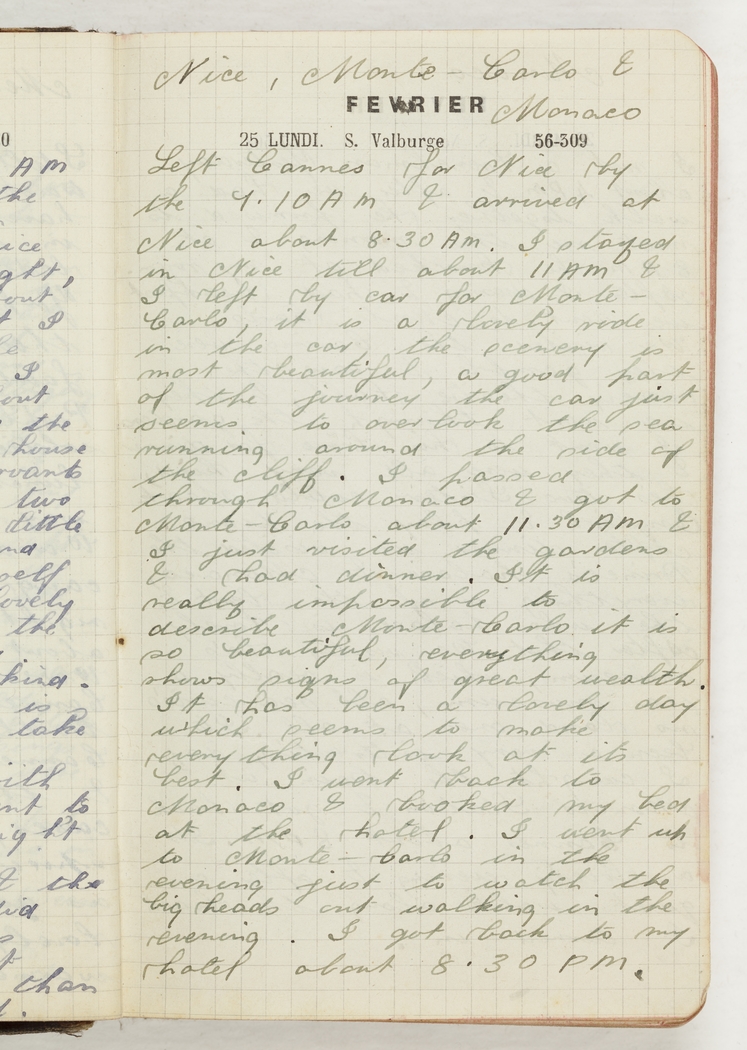 0
AM
the
ice
ght,
out
t I
le
I
out
the
house
rvants
two
little
nd
self
lovely
the
kind.
is
take
ith
nt to
ight
& the
did
s
t
than
d.
Nice, Monte-Carlo &
FEVRIER Monaco
25 LUNDI. S. Valburge 56-309
Left Cannes for Nice by
the 7.10 AM & arrived at
Nice about 8.30 AM. I stayed
in Nice till about 11 AM &
I left by car for Monte-
Carlo, it is a lovely ride
in the car, the scenery is
most beautiful, a good part
of the journey the car just
seems to over look the sea
running around the side of
the cliff. I passed
through Monaco & got to
Monte-Carlo about 11.30 AM &
I just visited the gardens
& had dinner. It is
really impossible to
describe Monte-Carlo it is
so beautiful, everything
shows signs of great wealth.
It has been a lovely day
which seems to make
every thing look at its
best. I went back to
Monaco & booked my bed
at the hotel. I went up
to Monte-Carlo in the
evening just to watch the
big heads out walking in the
evening. I got back to my
hotel about 8.30 PM.